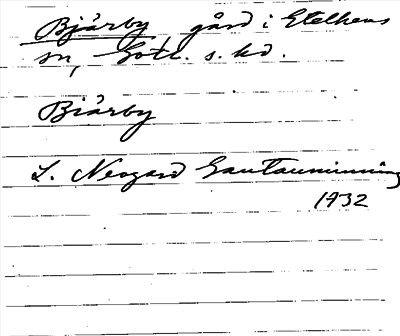 Bjärby gård i Etelhems
sn, Gotl. s. hd.
Biärby
L. Neogard Gautauminning
1932